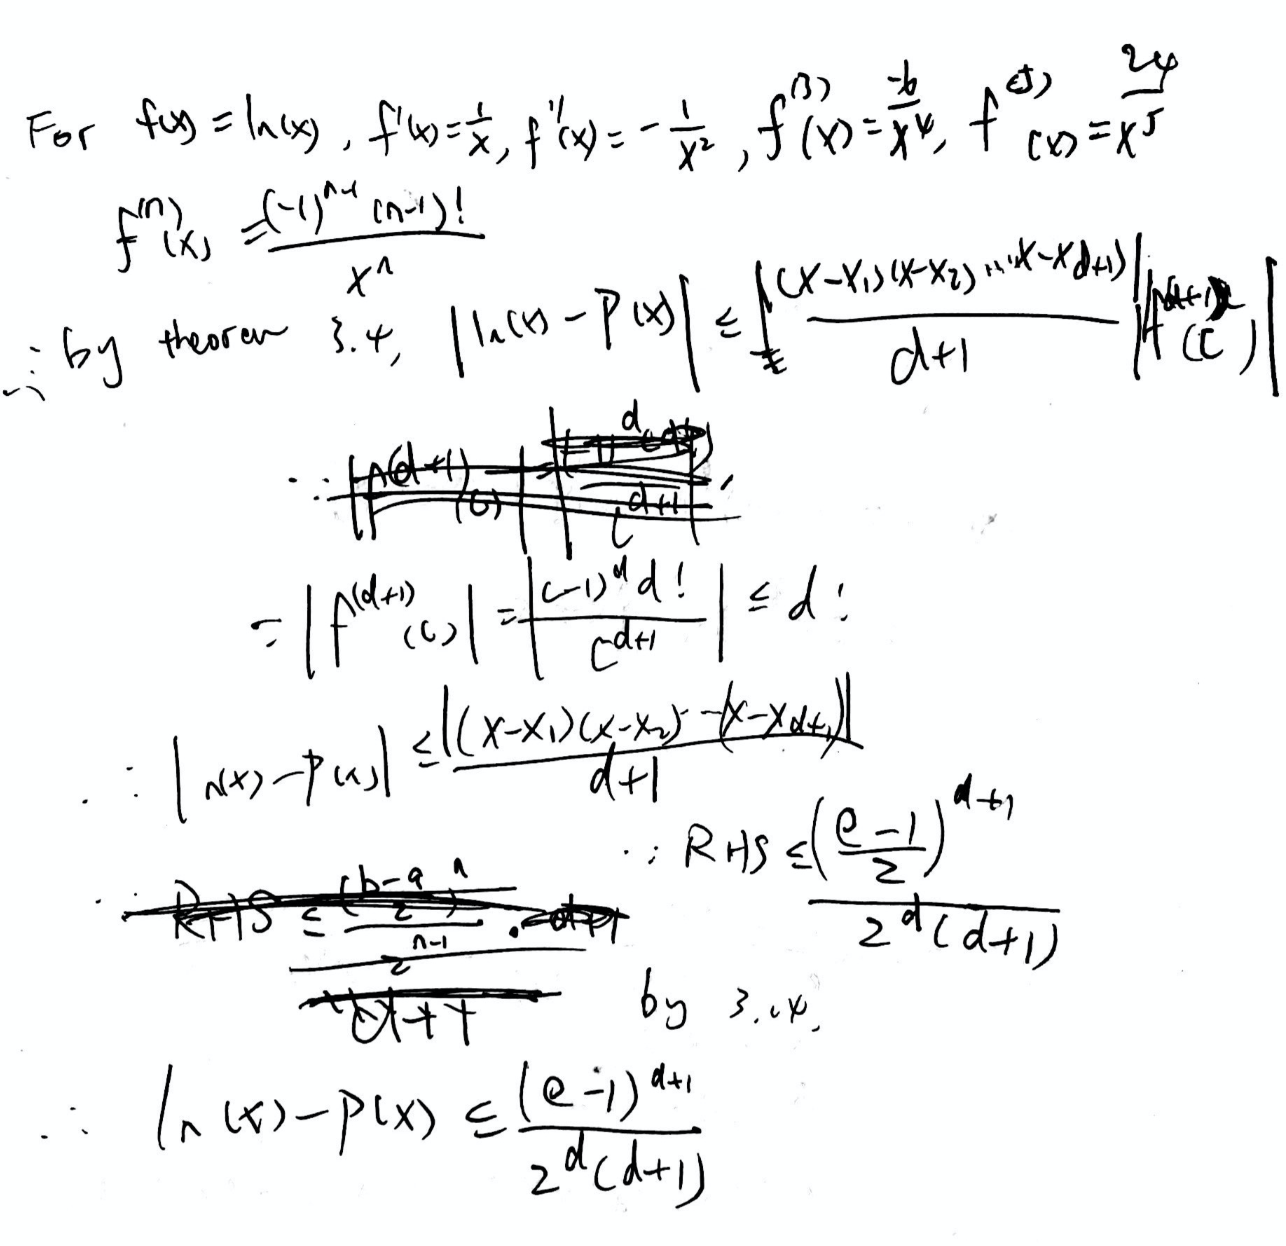 For f(x) = ln(x), f'(x) = 1/x, f''(x) = -1/x², f^(3)(x) = -6/x⁴, f^(5)(x) = 24/x⁵
f^(n)(x) = (-1)^(n-1) (n-1)! / x^n
∴ by theorem 3.4, |ln(x) - P(x)| ≤ |(x-x₁)(x-x₂)...(x-x_{d+1}) / d+1| |f^(d+1)(c)|
= |f^(d+1)(c)| = |(-1)^d d! / c^(d+1)| ≤ d!
∴ |ln(x) - P(x)| ≤ |(x-x₁)(x-x₂)--(x-x_{d+1})| / d+1
∵ RHS ≤ ((e-1)/2)^(d+1) / 2^d(d+1)
by 3.14.
∴ ln(x) - P(x) ≤ (e-1)^(d+1) / 2^d(d+1)